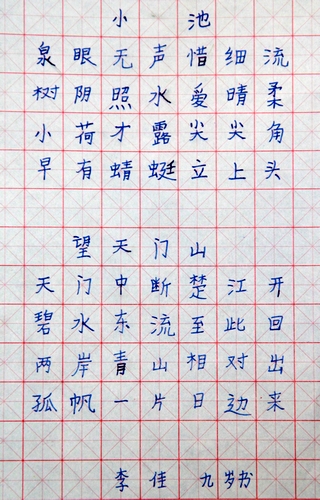 小 池
泉眼无声惜细流
树阴照水爱晴柔
小荷才露尖尖角
早有蜻蜓立上头
望天门山
天门中断楚江开
碧水东流至此回
两岸青山相对出
孤帆一片日边来
李佳 九岁书